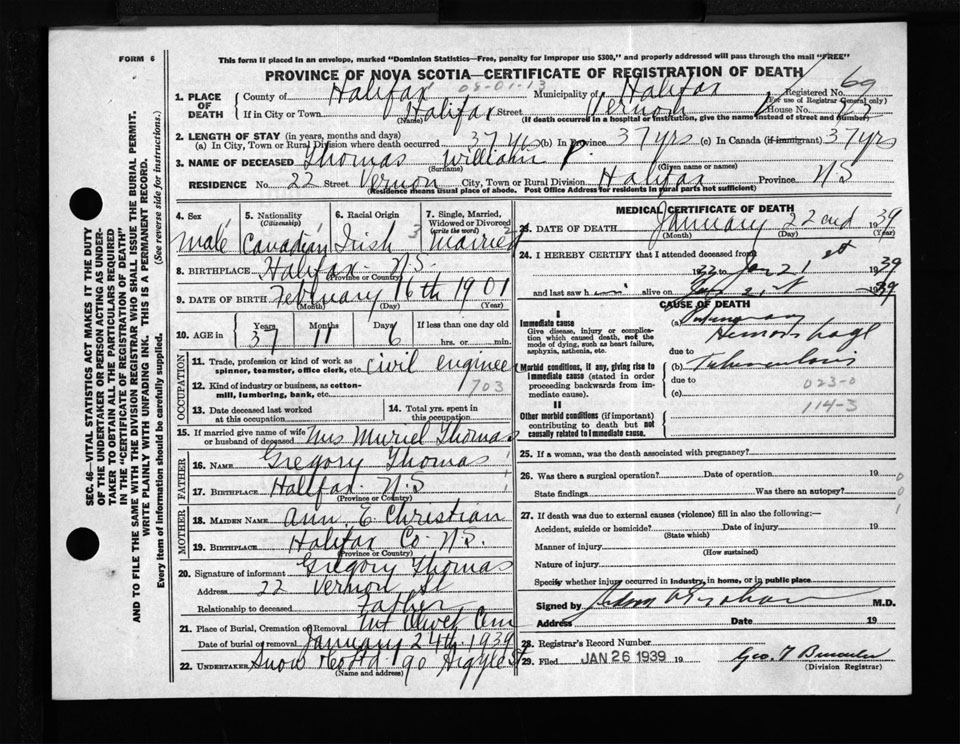 FORM 6
This form if placed in an envelope, marked "Dominion Statistics—Free, penalty for improper use $300," and properly addressed will pass through the mail "FREE"
PROVINCE OF NOVA SCOTIA—CERTIFICATE OF REGISTRATION OF DEATH
08-01-13
1. PLACE OF DEATH
County of Halifax Municipality of Halifax Registered No. 69
(For use of Registrar General only)
If in City or Town Halifax Street Vernon House No.
(Name) (If death occurred in a hospital or institution, give the name instead of street and number)
2. LENGTH OF STAY (in years, months and days)
(a) In City, Town or Rural Division where death occurred 37 yrs (b) In Province 37 yrs (c) In Canada (if immigrant) 37 yrs
3. NAME OF DECEASED Thomas William P.
(Surname) (Given name or names)
RESIDENCE No. 22 Street Vernon City, Town or Rural Division Halifax Province NS
(Residence means usual place of abode. Post Office Address for residents in rural parts not sufficient)
4. Sex Male
5. Nationality (Citizenship) Canadian
6. Racial Origin Irish 3
7. Single, Married, Widowed or Divorced (write the word) Married 2
8. BIRTHPLACE Halifax N.S.
(Province or Country)
9. DATE OF BIRTH February 16th 1901
(Month) (Day) (Year)
10. AGE in Years 37 Months 11 Days 6 If less than one day old
hrs. or min.
OCCUPATION
11. Trade, profession or kind of work as spinner, teamster, office clerk, etc. Civil engineer
12. Kind of industry or business, as cotton-mill, lumbering, bank, etc. 703
13. Date deceased last worked at this occupation
14. Total yrs. spent in this occupation
15. If married give name of wife or husband of deceased Mrs Muriel Thomas
FATHER
16. NAME Gregory Thomas
17. BIRTHPLACE Halifax N.S
(Province or Country)
MOTHER
18. MAIDEN NAME Ann E. Christian
19. BIRTHPLACE Halifax Co. N.S.
(Province or Country)
20. Signature of informant Gregory Thomas
Address 22 Vernon St
Relationship to deceased Father
21. Place of Burial, Cremation or Removal Mt Olivet Cem
Date of burial or removal January 24th 1939
22. UNDERTAKER Snow & Co Ltd 90 Argyle St
(Name and address)
MEDICAL CERTIFICATE OF DEATH
23. DATE OF DEATH January 22nd 1939
(Month) (Day) (Year)
24. I HEREBY CERTIFY that I attended deceased from
Jan 21st 1939
and last saw h alive on 1939
CAUSE OF DEATH
I
Immediate cause
Give disease, injury or complication which caused death, not the mode of dying, such as heart failure, asphyxia, asthenia, etc.
(a) Pulmonary Hemorrhage
due to
Morbid conditions, if any, giving rise to immediate cause (stated in order proceeding backwards from immediate cause).
(b) Tuberculosis
due to 023-0
(c)
114-3
II
Other morbid conditions (if important) contributing to death but not causally related to immediate cause.
25. If a woman, was the death associated with pregnancy?
26. Was there a surgical operation? Date of operation 19
State findings Was there an autopsy?
0
0
1
27. If death was due to external causes (violence) fill in also the following:—
Accident, suicide or homicide? Date of injury 19
(State which)
Manner of injury
(How sustained)
Nature of injury
Specify whether injury occurred in industry, in home, or in public place
Signed by M.D.
Address Date 19
28. Registrar's Record Number
29. Filed JAN 26 1939 19
(Division Registrar)
SEC. 46—VITAL STATISTICS ACT MAKES IT THE DUTY OF THE UNDERTAKER OR PERSON ACTING AS UNDERTAKER TO OBTAIN ALL THE PARTICULARS REQUIRED IN THE "CERTIFICATE OF REGISTRATION OF DEATH"
AND TO FILE THE SAME WITH THE DIVISION REGISTRAR WHO SHALL ISSUE THE BURIAL PERMIT.
WRITE PLAINLY WITH UNFADING INK. THIS IS A PERMANENT RECORD.
Every item of information should be carefully supplied. (See reverse side for instructions.)